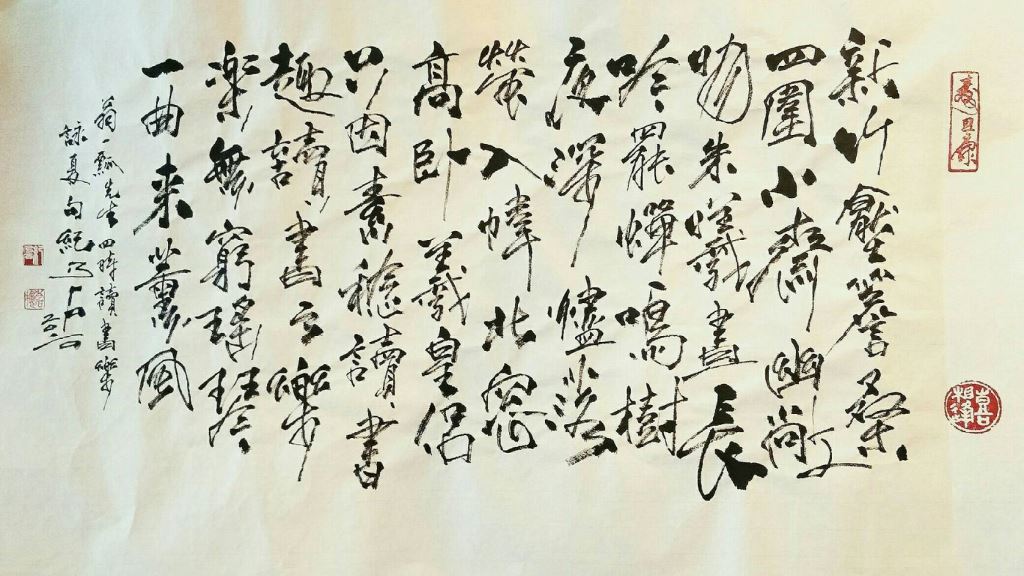 新竹壓簷桑
四圍小齋幽敞
明朱曦晝長
吟罷蟬鳴樹
夜深燼落
螢入幃北窗
高臥羲皇侶
只因素稔讀書
趣讀書之樂
楽無窮瑤琴
一曲来薰風
翁一瓢先生四時讀書樂
詠夏句
喜相逢